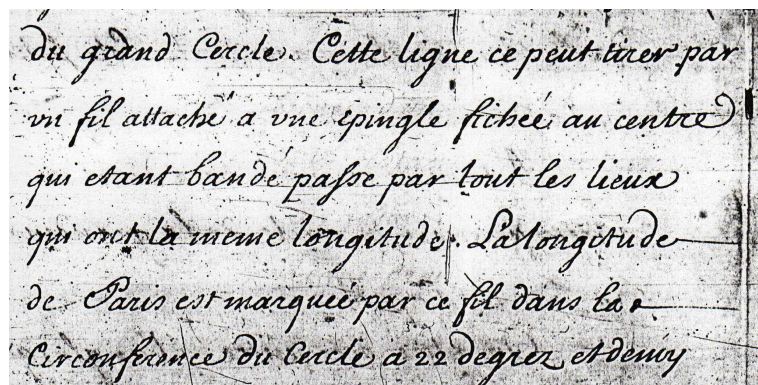 du grand Cercle. Cette ligne ce peut tirer par
vn fil attaché a vne epingle fichée au centre
qui etant bandé passe par tout les lieux
qui ont la meme longitude. La longitude
de Paris est marquée par ce fil dans la
Circonference du Cercle a 22 degrez et demy